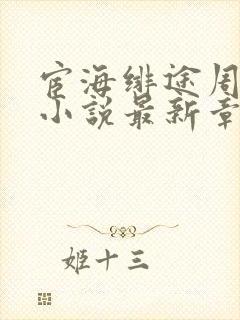 宦海绯途周
小说最新章
姬十三